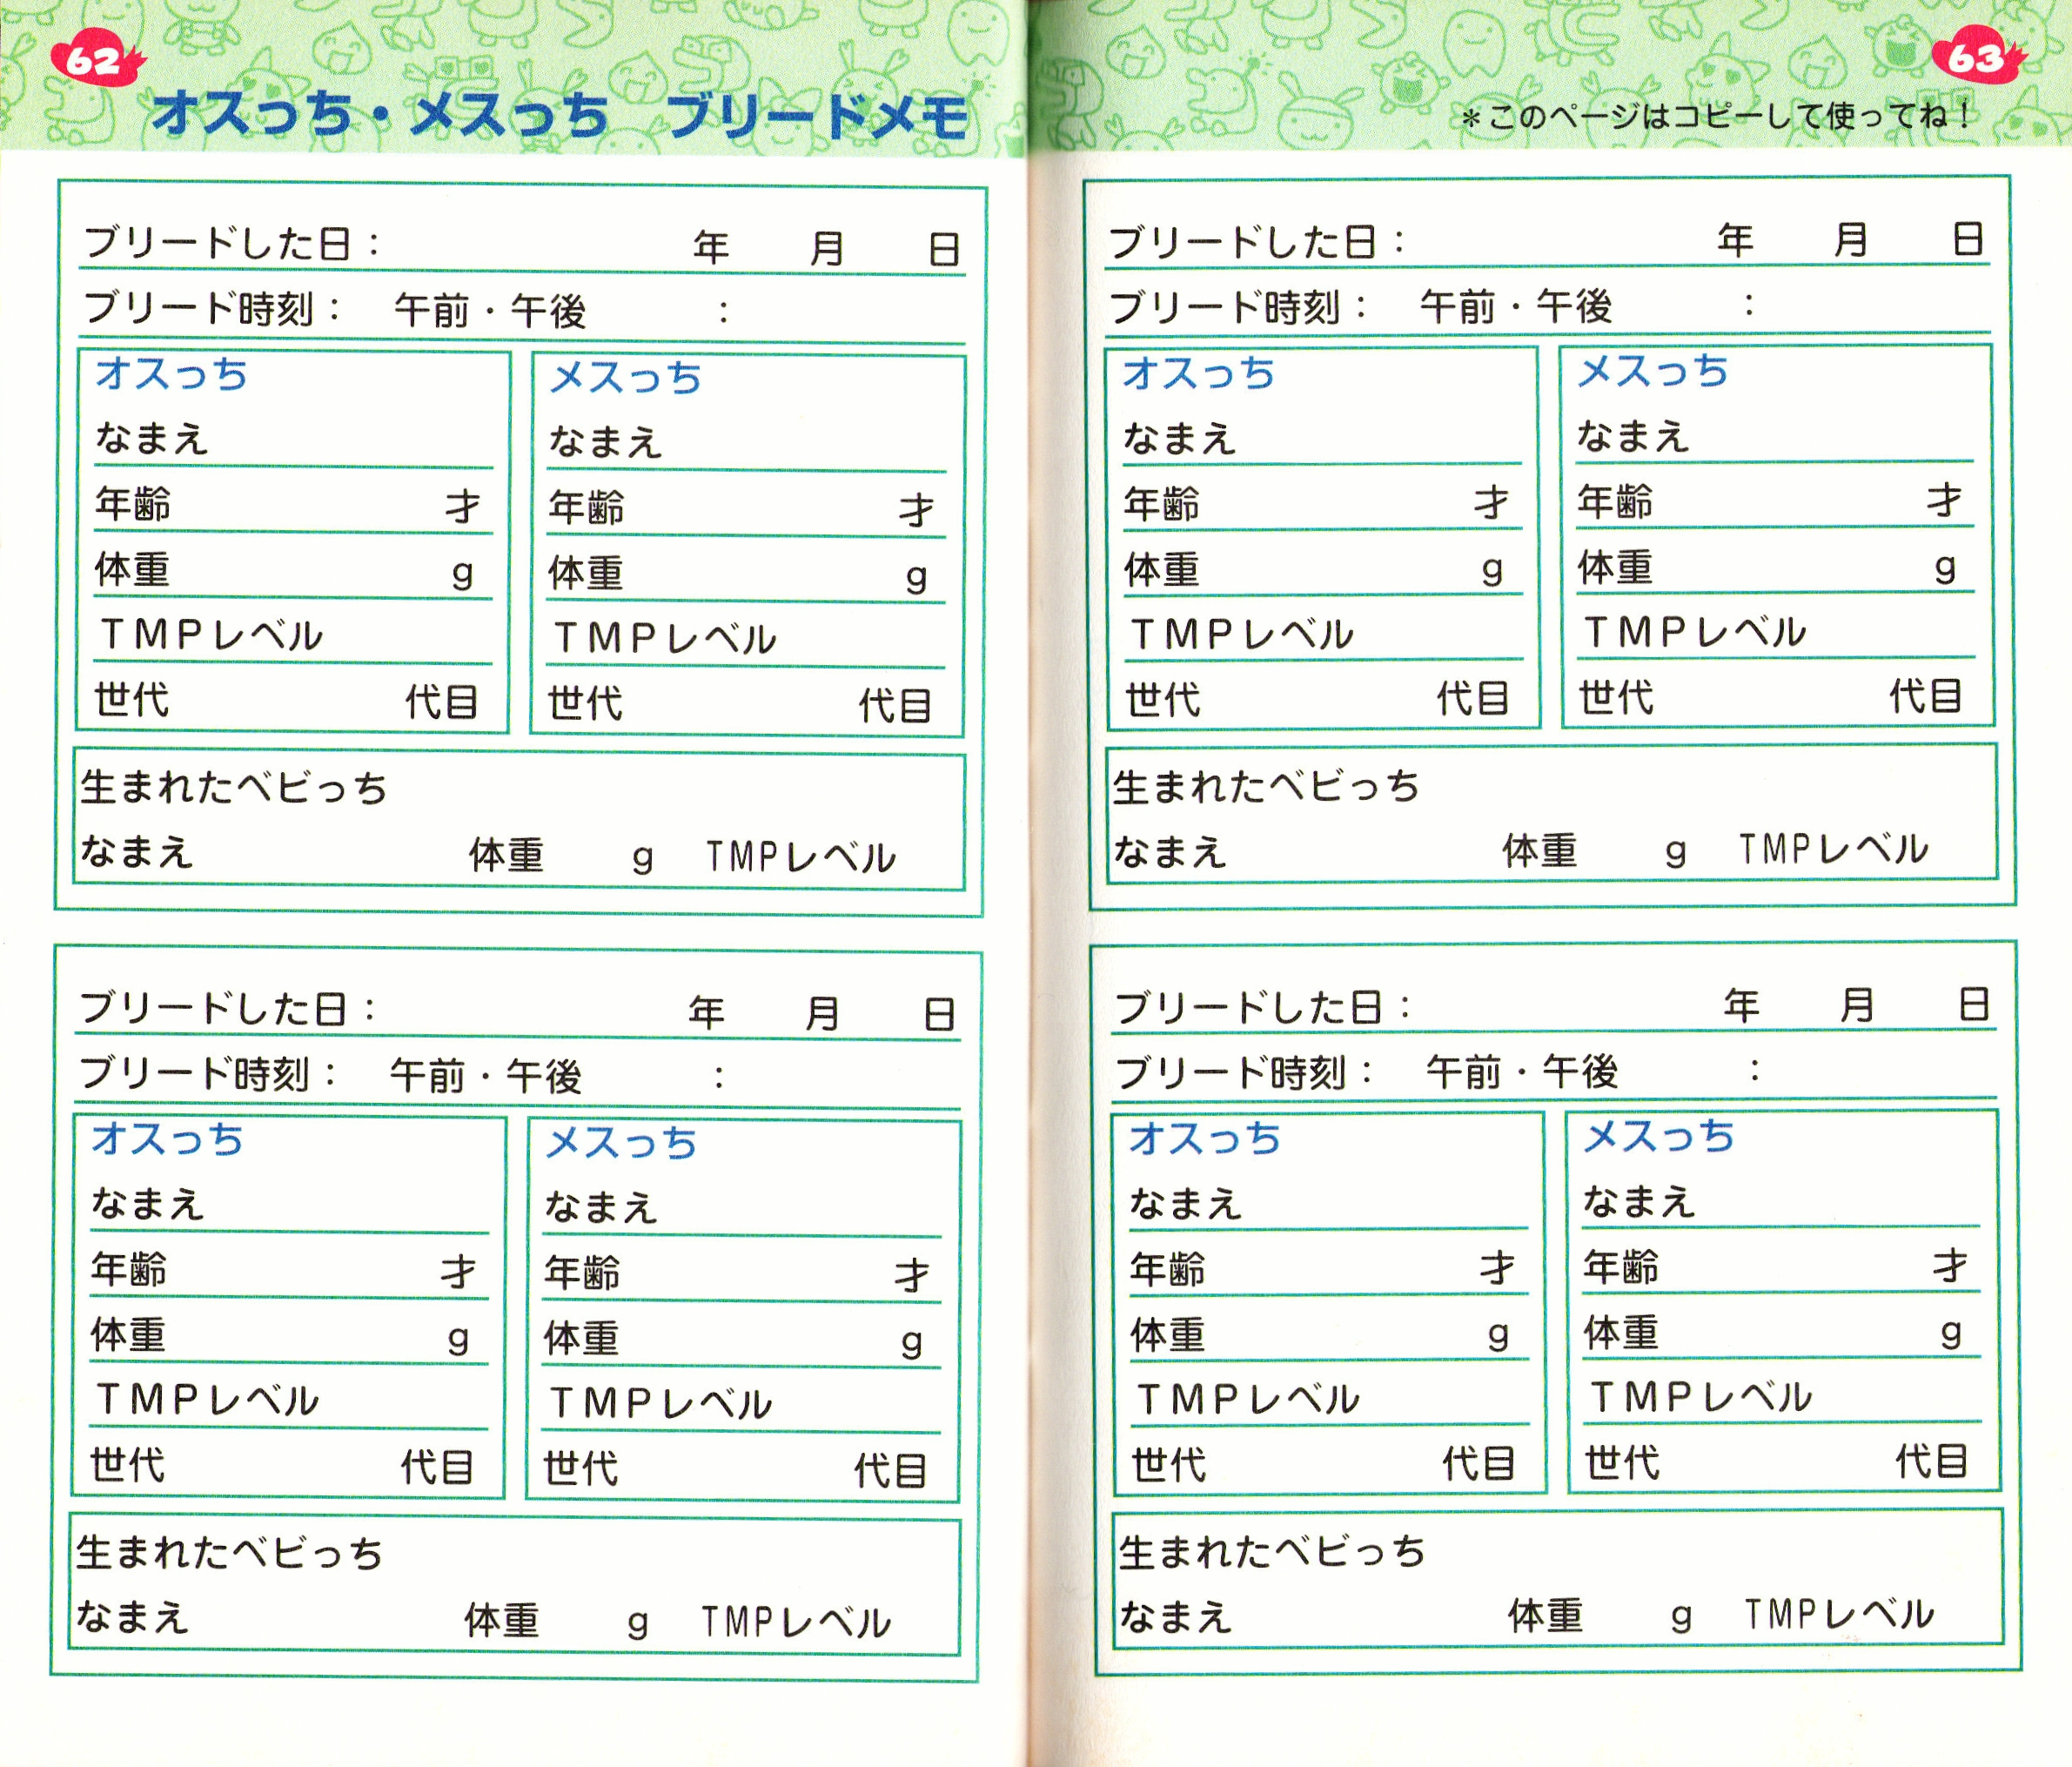 62
オスっち・メスっち ブリードメモ
ブリードした日： 年 月 日
ブリード時刻： 午前・午後 ：
オスっち
なまえ
年齢 才
体重 g
TMPレベル
世代 代目
メスっち
なまえ
年齢 才
体重 g
TMPレベル
世代 代目
生まれたベビっち
なまえ 体重 g TMPレベル
ブリードした日： 年 月 日
ブリード時刻： 午前・午後 ：
オスっち
なまえ
年齢 才
体重 g
TMPレベル
世代 代目
メスっち
なまえ
年齢 才
体重 g
TMPレベル
世代 代目
生まれたベビっち
なまえ 体重 g TMPレベル
63
＊このページはコピーして使ってね！
ブリードした日： 年 月 日
ブリード時刻： 午前・午後 ：
オスっち
なまえ
年齢 才
体重 g
TMPレベル
世代 代目
メスっち
なまえ
年齢 才
体重 g
TMPレベル
世代 代目
生まれたベビっち
なまえ 体重 g TMPレベル
ブリードした日： 年 月 日
ブリード時刻： 午前・午後 ：
オスっち
なまえ
年齢 才
体重 g
TMPレベル
世代 代目
メスっち
なまえ
年齢 才
体重 g
TMPレベル
世代 代目
生まれたベビっち
なまえ 体重 g TMPレベル